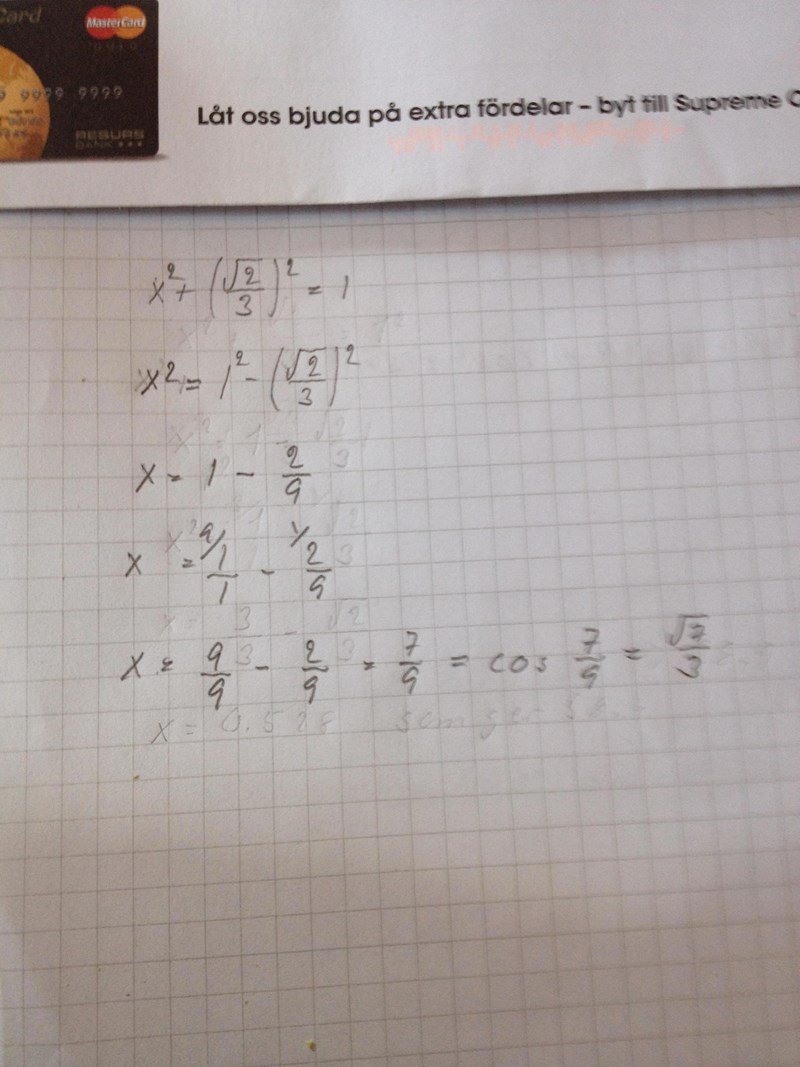 Card
MasterCard
GOLD
9 9999 9999
RESURS
BANK
Låt oss bjuda på extra fördelar – byt till Supreme C
x² + (√2/3)² = 1
x² = 1² - (√2/3)²
x = 1 - 2/9
x = 9/ 1/1 - 1/ 2/9
x = 9/9 - 2/9 = 7/9 = cos 7/9 = √7/3
x = 0.528 som ger